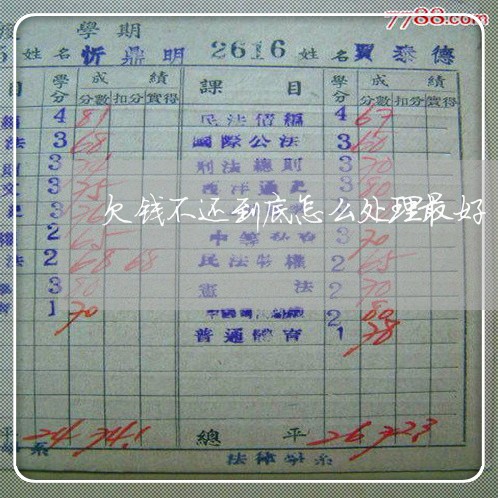 7788.com
學期
姓名 忻鼎明 2616 姓名 賈泰德
目 學分 成績 課目 學分 成績
分數 扣分 實得 分數 扣分 實得
4 81 民法債編 4 67
法 3 68 國際公法 3 60
則 3 刑法總則 3 70
文 3 75 西洋通史 3 80
欠钱不还到底怎么处理最好
權 2 65 3 70
法 2 68 68 民法物權 2 65
3 80 憲法 2 70
1 70 2 80
普通體育 1 78
平 24 74.1 總平 26 72.3
系 法律學系